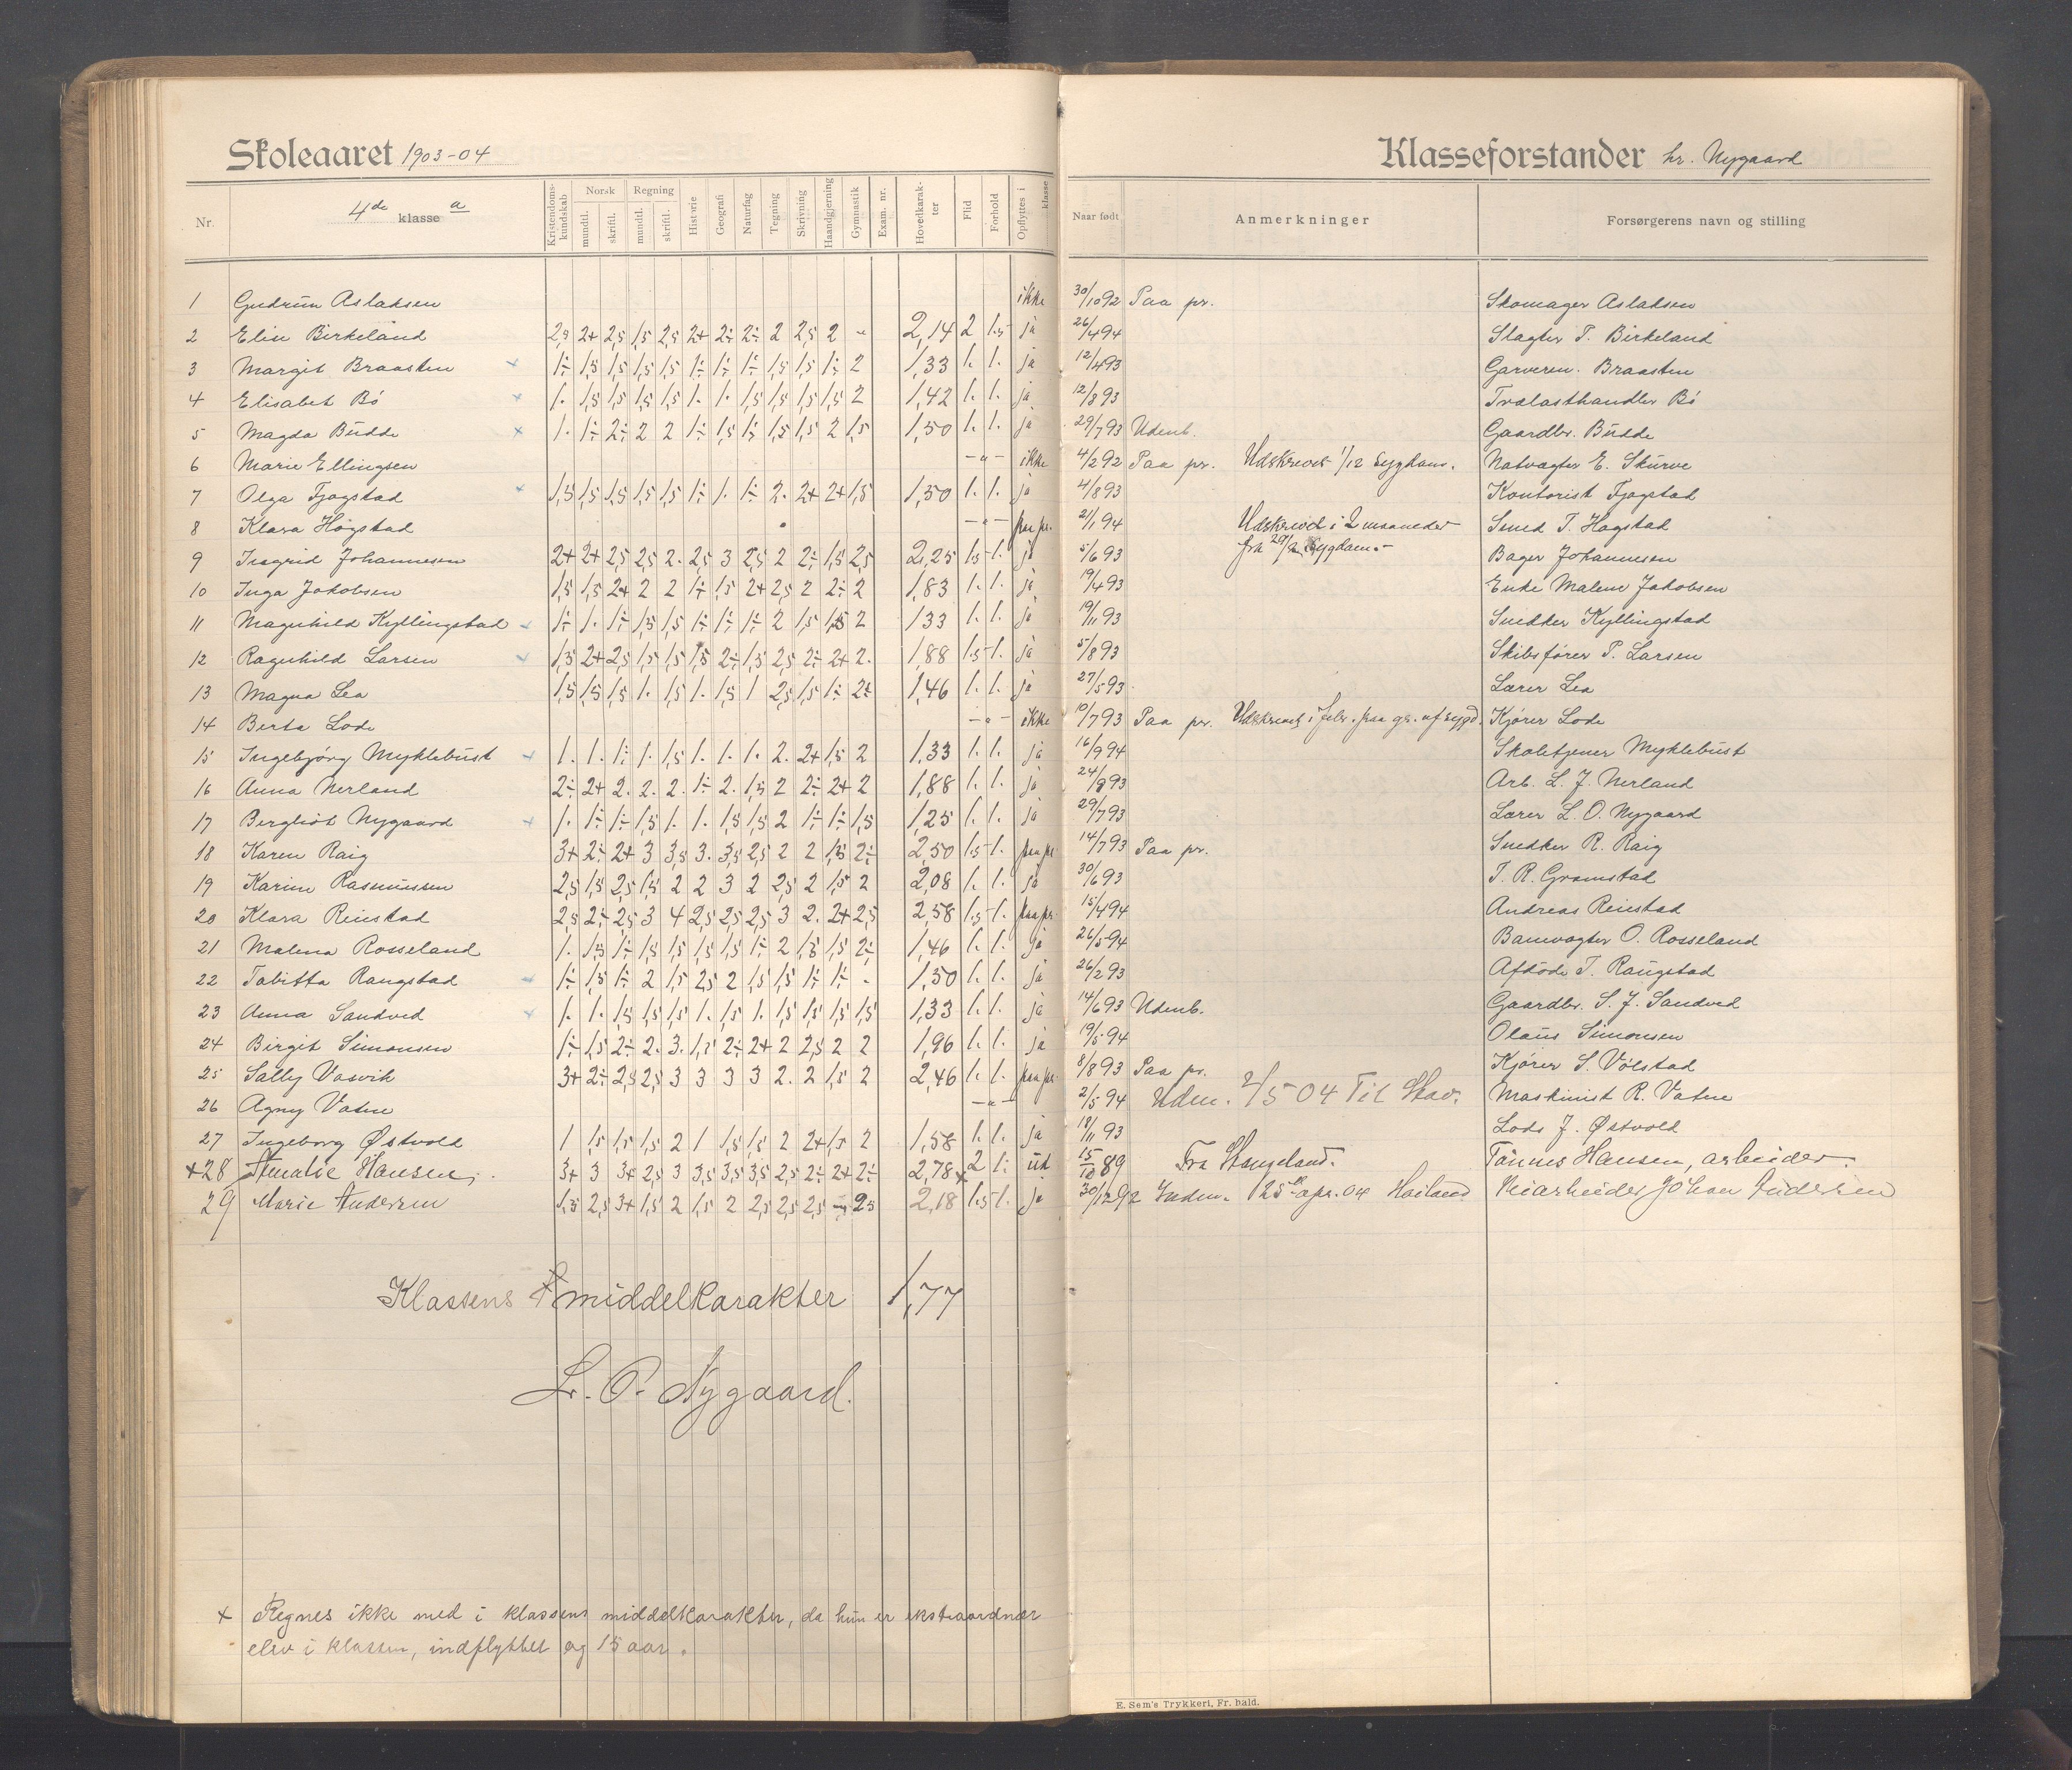 Skoleaaret 1903-04
Klasseforstander hr. Nygaard
Nr. 4de klasse a Kristendomskundskab Norsk mundtl. skriftl. Regning mundtl. skriftl. Historie Geografi Naturfag Tegning Skrivning Haandgjerning Gymnastik Exam. nr. Hovedkarakter Flid Forhold Opflyttes i klasse Naar født Anmerkninger Forsørgerens navn og stilling
1 Gudrun Aslaksen ikke 30/10 92 Paa pr. Skomager Aslaksen
2 Elise Birkeland 2,5 2+ 2,5 1,5 2,5 2+ 2÷ 2÷ 2 2,5 2 - 2,14 2 1.5 ja 26/4 94 Slagter T. Birkeland
3 Margit Braasten 1÷ 1,5 1,5 1,5 1,5 1÷ 1÷ 1÷ 1,5 1,5 1÷ 2 1,33 1. 1. ja 12/4 93 Garveren. Braasten
4 Elisabet Bö 1. 1,5 1,5 1,5 1,5 1. 1. 1,5 1,5 1,5 1,5 2 1,42 1. 1. ja 12/8 93 Trælasthandler Bö
5 Magda Budde 1. 1÷ 2÷ 2 2 1÷ 1,5 1÷ 1,5 1,5 2 1,5 1,50 1. 1. ja 29/7 93 Udenb. Gaardbr. Budde
6 Marie Ellingsen -"- ikke 4/2 92 Paa pr. Udskrevet 1/12 Sygdom. Natvagter E. Skurve
7 Olga Fjogstad 1,5 1,5 1,5 1,5 1,5 1÷ 1. 1÷ 2. 2+ 2+ 1,5 1,50 1. 1. ja 4/8 93 Kontorist Fjogstad
8 Klara Högstad -"- paa pr. 2/1 94 Udskrevet i 2 maaneder Smed T. Høgstad
fra 29/2 Sygdom.-
9 Ingrid Johannesen 2+ 2+ 2,5 2,5 2. 2,5 3 2,5 2 2÷ 1,5 2,5 2,25 1.5 1. ja 5/6 93 Bager Johannesen
10 Inga Jakobsen 1,5 1,5 2+ 2 2 1÷ 1,5 2+ 2,5 2 2÷ 2 1,83 1. 1. ja 19/4 93 Enke Malene Jakobsen
11 Magnhild Kyllingstad 1÷ 1. 1÷ 1,5 1,5 1÷ 1÷ 1÷ 2 1,5 1,5 2 1,33 1. 1. ja 19/11 93 Snedker Kyllingstad
12 Ragnhild Larsen 1,5 2+ 2,5 1,5 1,5 1,5 2÷ 1,5 2,5 2÷ 2+ 2. 1,88 1.5 1. ja 5/8 93 Skibsfører P. Larsen
13 Magna Lea 1,5 1,5 1,5 1. 1,5 1. 1,5 1 2,5 1,5 1÷ 2÷ 1,46 1. 1. ja 27/5 93 Lærer Lea
14 Berta Lode -"- ikke 10/7 93 Paa pr. Udskrevet i febr. paa gr. af sygd. Kjører Lode
15 Ingebjörg Myklebust 1. 1. 1÷ 1. 1,5 1. 1. 1. 2. 2+ 1,5 2 1,33 1. 1. ja 16/9 94 Skoletjener Myklebust
16 Anna Nerland 2÷ 2+ 2. 2. 2. 1÷ 2. 1,5 2 2÷ 2+ 2 1,88 1. 1. ja 24/8 93 Arb. L. J. Nerland
17 Bergliot Nygaard 1. 1÷ 1÷ 1,5 1. 1. 1,5 1,5 2 1÷ 1÷ 1,5 1,25 1. 1. ja 29/7 93 Lærer L. O. Nygaard
18 Karen Raig 3+ 2÷ 2+ 3 3,5 3. 3,5 2,5 2 2 1,5 2÷ 2,50 1.5 1. paa pr. 14/7 93 Paa pr. Snedker R. Raig
19 Karine Rasmussen 2,5 1,5 2,5 1,5 2 2 3 2 2,5 2 1,5 2 2,08 1. 1. ja 30/6 93 T. R. Gramstad
20 Klara Reiestad 2,5 2÷ 2,5 3 4 2,5 2,5 2,5 3 2. 2+ 2,5 2,58 1.5 1. paa pr. 15/4 94 Andreas Reiestad
21 Malena Rosseland 1. 1,5 1÷ 1,5 1,5 1,5 1,5 1÷ 2 1,5 1,5 2÷ 1,46 1. 1. ja 26/5 94 Banevogter O. Rosseland
22 Tabitta Raugstad 1÷ 1,5 1÷ 2 1,5 2,5 2 1,5 1,5 1÷ 1÷ - 1,50 1. 1. ja 26/2 93 Afdöde T. Raugstad
23 Anna Sandved 1. 1. 1,5 1,5 1,5 1. 1,5 1. 1,5 1,5 1,5 1,5 1,33 1. 1. ja 14/6 93 Udenb. Gaardbr. S. J. Sandved
24 Birgit Simonsen 1÷ 1,5 2÷ 2. 3. 1,5 2÷ 2+ 2 2,5 2 2 1,96 1. 1. ja 19/5 94 Olaus Simonsen
25 Sally Vasvik 3+ 2÷ 2,5 2,5 3 3 3 3 2. 2 1,5 2 2,46 1. 1. paa pr. 8/8 93 Paa pr. Kjører S. Vølstad
26 Agny Vatne -"- 2/5 94 Udm. 2/5 04 Til Stav. Maskinist R. Vatne
27 Ingeborg Østvold 1 1,5 1,5 1,5 2 1 1,5 1,5 2 2+ 1,5 2 1,58 1. 1. ja 18/11 93 Lods J. Østvold
+28 Amalie Hansen. 3+ 3 3+ 2,5 3 3,5 3,5 3,5 2,5 2÷ 2+ 2÷ 2,78+ 2 1÷ ud 15/10 89 Fra Stangeland. Tønnes Hansen, arbeider.
29 Marie Andersen 1,5 2,5 3+ 1,5 2 1,5 2 2,5 2,5 2,5 - 2,5 2,18 1.5 1. ja 30/12 92 Indm. 25de apr. 04 Hailand Veiarbeider Johan Andersen
Klassens + middelkarakter 1,77
L. O. Nygaard.
+ Regnes ikke med i klassens middelkarakter, da hun er ekstraordnær
elev i klassen, indflyttet og 15 aar.
E. Sem's Trykkeri, Fr. hald.